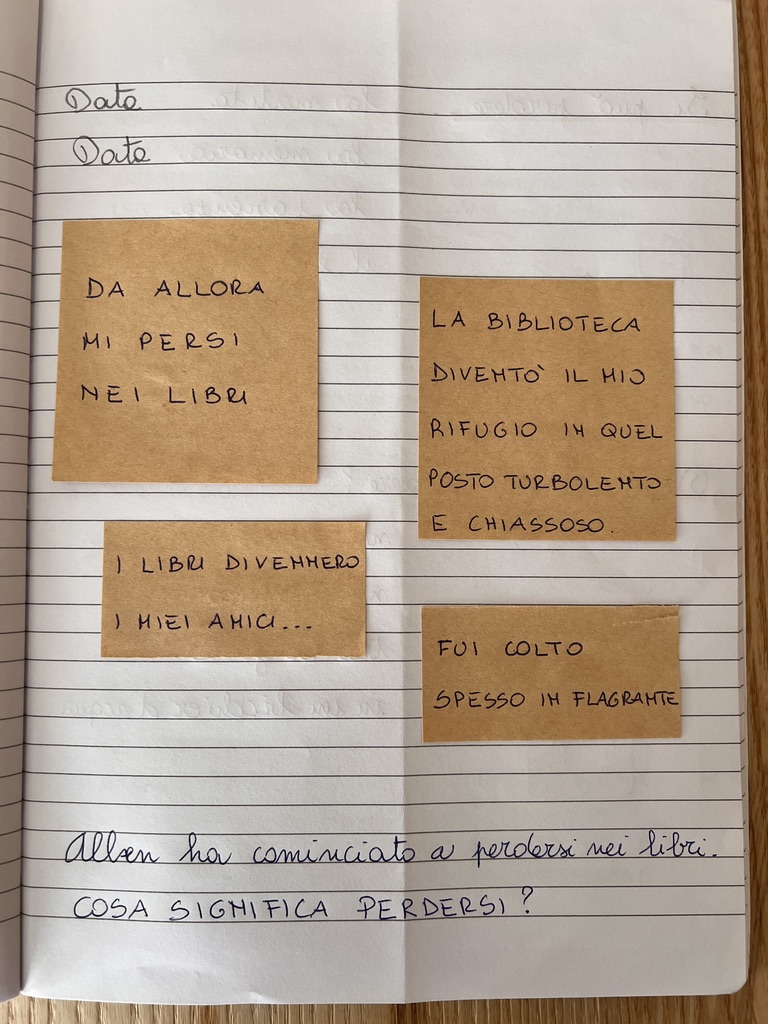 Data
Data
DA ALLORA
MI PERSI
NEI LIBRI
LA BIBLIOTECA
DIVENTÒ IL MIO
RIFUGIO IN QUEL
POSTO TURBOLENTO
E CHIASSOSO.
I LIBRI DIVENNERO
I MIEI AMICI...
FUI COLTO
SPESSO IN FLAGRANTE
Allen ha cominciato a perdersi nei libri.
COSA SIGNIFICA PERDERSI?